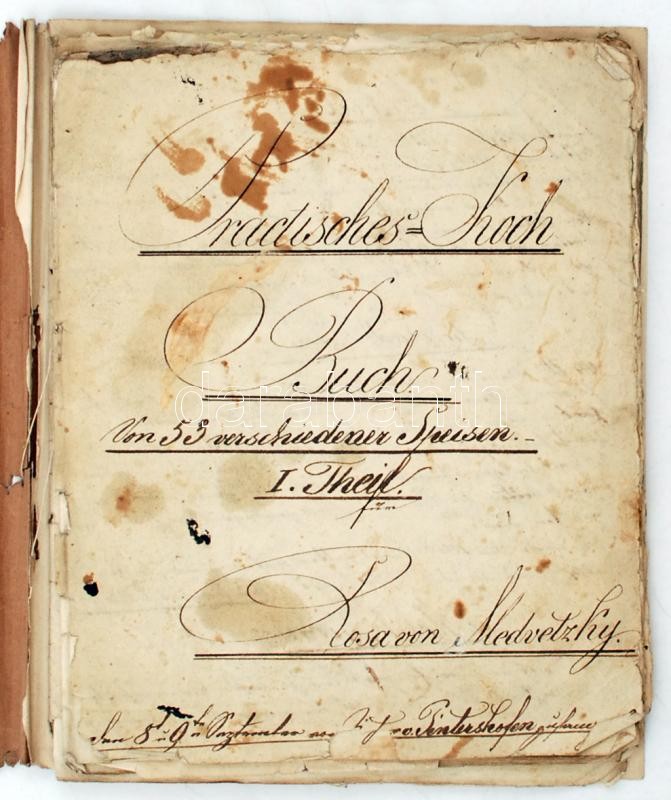 Practisches=Koch
Buch.
Von 53 verschiedener Speisen.
I. Theil.
für
Rosa von Medvetzky.
den 8t u 9ten September v. Pintershofen
darabanth